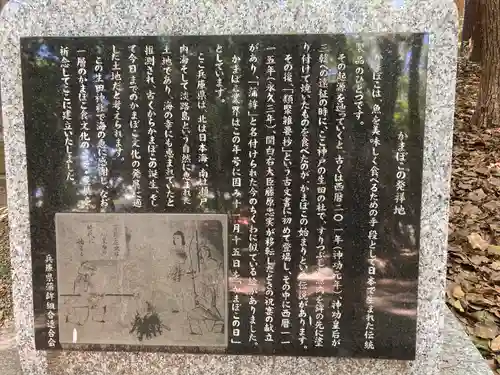 かまぼこの発祥地
かまぼこは、魚を美味しく食べるための手段として日本で生まれた伝統
製品のひとつです。
その起源を辿っていくと、古くは西暦二〇一年(神功元年)、神功皇后が
三韓への遠征の時に、ここ神戸の生田の社で、すりつぶした魚肉を鉾の先に塗
り付けて焼いたものを食べたのがかまぼこの始まりという伝説があります。
その後、「類聚雑要抄」という古文書に初めて登場し、その中に西暦一一
一五年(永久三年)、関白右大臣藤原忠実が移転したときの祝宴の献立
があり、「蒲鉾」と名付けられた今のちくわに似ている絵がありました。
かまぼこ業界はこの年号に因み十一月十五日を「かまぼこの日」
としています。
ここ兵庫県は、北は日本海、南は瀬戸
内海そして淡路島という自然に恵まれた
土地であり、海の幸にも恵まれていたと
推測され、古くからかまぼこの誕生、そし
て今日までのかまぼこ文化の発展に適
した土地だと考えられます。
この生田神社で海の恵に感謝し、なお
一層のかまぼこ食文化の
祈念してここに建立いたしました。
兵庫県蒲鉾組合連合会